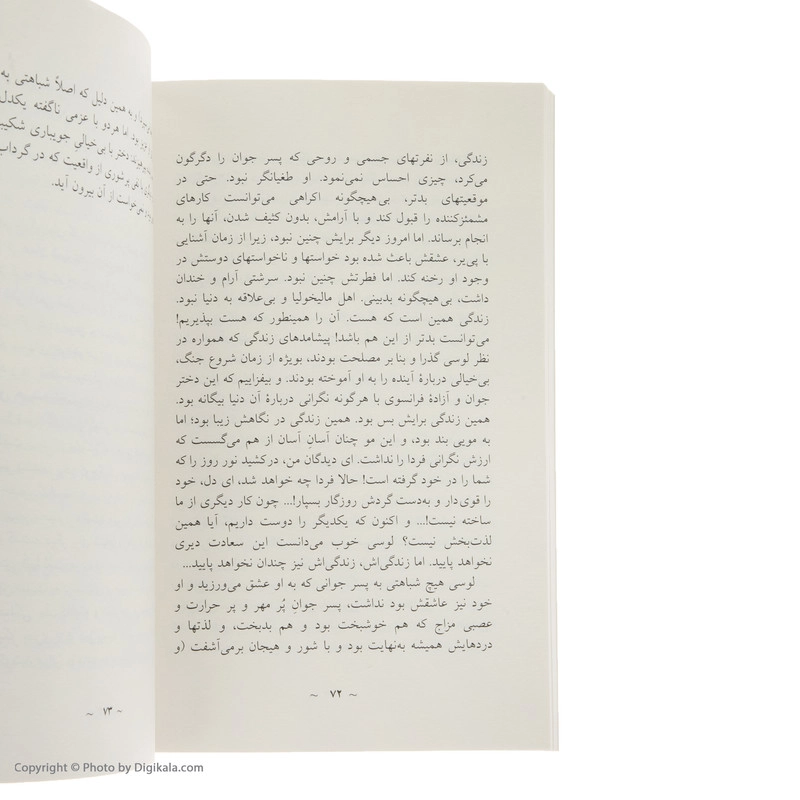 زندگی، از نفرتهای جسمی و روحی که پسر جوان را دگرگون
می‌کرد، چیزی احساس نمی‌نمود. او طغیانگر نبود. حتی در
موقعیتهای بدتر، بی‌هیچگونه اکراهی می‌توانست کارهای
مشمئزکننده را قبول کند و با آرامش، بدون کثیف شدن، آنها را به
انجام برساند. اما امروز دیگر برایش چنین نبود، زیرا از زمان آشنایی
با پی‌یر، عشقش باعث شده بود خواستها و ناخواستهای دوستش در
وجود او رخنه کند. اما فطرتش چنین نبود. سرشتی آرام و خندان
داشت، بی‌هیچگونه بدبینی. اهل مالیخولیا و بی‌علاقه به دنیا نبود.
زندگی همین است که هست. آن را همینطور که هست بپذیریم!
می‌توانست بدتر از این هم باشد! پیشامدهای زندگی که همواره در
نظر لوسی گذرا و بنا بر مصلحت بودند، بویژه از زمان شروع جنگ،
بی‌خیالی دربارهٔ آینده را به او آموخته بودند. و بیفزاییم که این دختر
جوان و آزادهٔ فرانسوی با هرگونه نگرانی دربارهٔ آن دنیا بیگانه بود.
همین زندگی برایش بس بود. همین زندگی در نگاهش زیبا بود؛ اما
به مویی بند بود، و این مو چنان آسانِ آسان از هم می‌گسست که
ارزش نگرانی فردا را نداشت. ای دیدگان من، درکشید نور روز را که
شما را در خود گرفته است! حالا فردا چه خواهد شد، ای دل، خود
را قوی‌دار و به‌دست گردش روزگار بسپار!... چون کار دیگری از ما
ساخته نیست!... و اکنون که یکدیگر را دوست داریم، آیا همین
لذت‌بخش نیست؟ لوسی خوب می‌دانست این سعادت دیری
نخواهد پایید. اما زندگی‌اش، زندگی‌اش نیز چندان نخواهد پایید...
لوسی هیچ شباهتی به پسر جوانی که به او عشق می‌ورزید و او
خود نیز عاشقش بود نداشت، پسر جوانِ پُر مهر و پر حرارت و
عصبی مزاج که هم خوشبخت بود و هم بدبخت، و لذتها و
دردهایش همیشه به‌نهایت بود و با شور و هیجان برمی‌آشفت (و
~ ۷۲ ~
به همین دلیل که اصلاً شباهتی به
بود اما هردو با عزمی ناگفته یکدل
دختر با بی‌خیالی جویباری شکیبا
پرشوری از واقعیت که در گرداب
خواست از آن بیرون آید.
~ ۷۳ ~
Copyright © Photo by Digikala.com